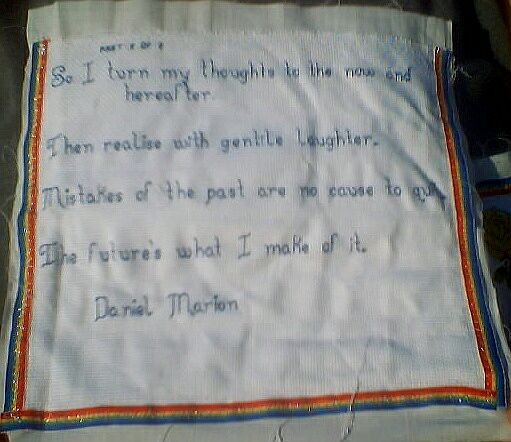 PART 2 OF 2
So I turn my thoughts to the now and
hereafter.
Then realise with gentle laughter.
Mistakes of the past are no cause to quit,
The future's what I make of it.
Daniel Marion